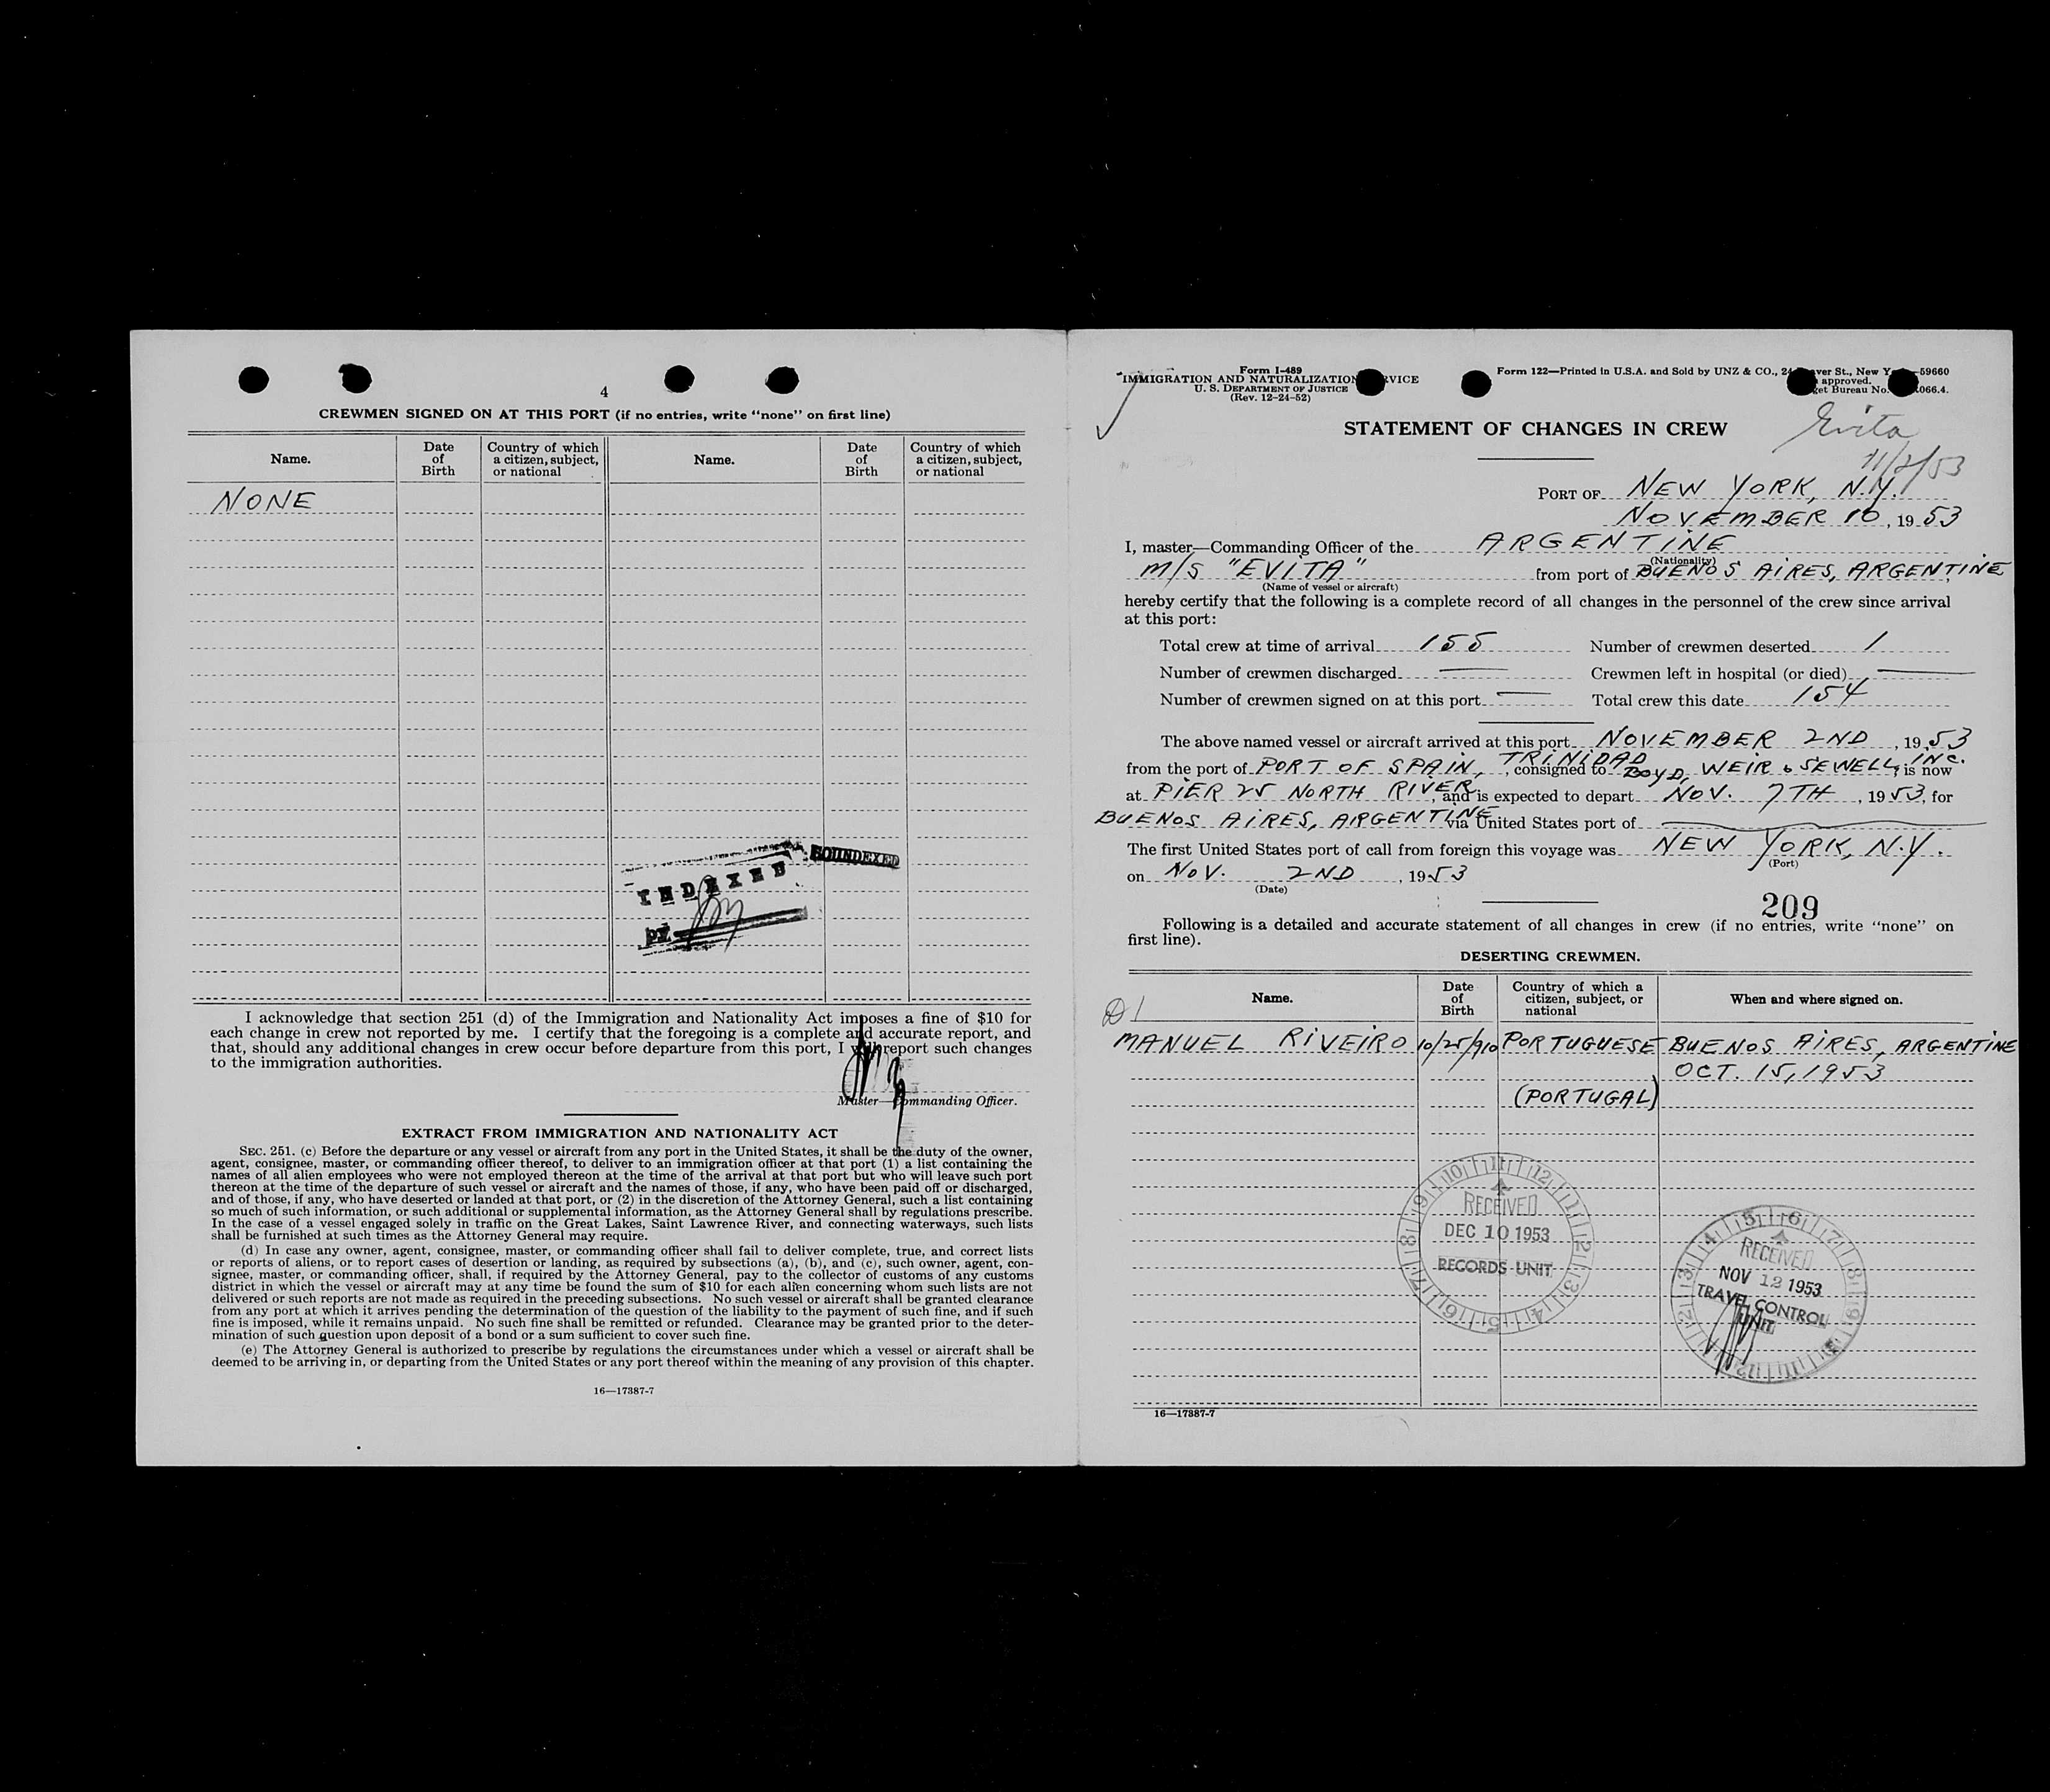 4
CREWMEN SIGNED ON AT THIS PORT (if no entries, write “none” on first line)
Name. Date of Birth Country of which a citizen, subject, or national Name. Date of Birth Country of which a citizen, subject, or national
NONE
SOUNDEXED
INDEXED
I acknowledge that section 251 (d) of the Immigration and Nationality Act imposes a fine of $10 for
each change in crew not reported by me. I certify that the foregoing is a complete and accurate report, and
that, should any additional changes in crew occur before departure from this port, I will report such changes
to the immigration authorities.
Master—Commanding Officer.
EXTRACT FROM IMMIGRATION AND NATIONALITY ACT
SEC. 251. (c) Before the departure or any vessel or aircraft from any port in the United States, it shall be the duty of the owner,
agent, consignee, master, or commanding officer thereof, to deliver to an immigration officer at that port (1) a list containing the
names of all alien employees who were not employed thereon at the time of the arrival at that port but who will leave such port
thereon at the time of the departure of such vessel or aircraft and the names of those, if any, who have been paid off or discharged,
and of those, if any, who have deserted or landed at that port, or (2) in the discretion of the Attorney General, such a list containing
so much of such information, or such additional or supplemental information, as the Attorney General shall by regulations prescribe.
In the case of a vessel engaged solely in traffic on the Great Lakes, Saint Lawrence River, and connecting waterways, such lists
shall be furnished at such times as the Attorney General may require.
(d) In case any owner, agent, consignee, master, or commanding officer shall fail to deliver complete, true, and correct lists
or reports of aliens, or to report cases of desertion or landing, as required by subsections (a), (b), and (c), such owner, agent, con-
signee, master, or commanding officer, shall, if required by the Attorney General, pay to the collector of customs of any customs
district in which the vessel or aircraft may at any time be found the sum of $10 for each alien concerning whom such lists are not
delivered or such reports are not made as required in the preceding subsections. No such vessel or aircraft shall be granted clearance
from any port at which it arrives pending the determination of the question of the liability to the payment of such fine, and if such
fine is imposed, while it remains unpaid. No such fine shall be remitted or refunded. Clearance may be granted prior to the deter-
mination of such question upon deposit of a bond or a sum sufficient to cover such fine.
(e) The Attorney General is authorized to prescribe by regulations the circumstances under which a vessel or aircraft shall be
deemed to be arriving in, or departing from the United States or any port thereof within the meaning of any provision of this chapter.
16—17387-7
Form I-489
IMMIGRATION AND NATURALIZATION SERVICE
U. S. DEPARTMENT OF JUSTICE
(Rev. 12-24-52)
Form 122—Printed in U.S.A. and Sold by UNZ & CO., 24 St., New 59660
approved.
Bureau No. 066.4.
STATEMENT OF CHANGES IN CREW
Evita
11/2/53
PORT OF NEW YORK, N.Y.
NOVEMBER 10, 19 53
I, master—Commanding Officer of the ARGENTINE
(Nationality)
M/S "EVITA" from port of BUENOS AIRES, ARGENTINE
(Name of vessel or aircraft)
hereby certify that the following is a complete record of all changes in the personnel of the crew since arrival
at this port:
Total crew at time of arrival 155 Number of crewmen deserted 1
Number of crewmen discharged — Crewmen left in hospital (or died) —
Number of crewmen signed on at this port — Total crew this date 154
The above named vessel or aircraft arrived at this port NOVEMBER 2ND, 19 53
from the port of PORT OF SPAIN, TRINIDAD, consigned to BOYD, WEIR & SEWELL, INC. is now
at PIER 25 NORTH RIVER, and is expected to depart NOV. 7TH, 19 53, for
BUENOS AIRES, ARGENTINE via United States port of —
The first United States port of call from foreign this voyage was NEW YORK, N.Y.
(Port)
on NOV. 2ND, 19 53
(Date)
209
Following is a detailed and accurate statement of all changes in crew (if no entries, write “none” on
first line).
DESERTING CREWMEN.
Name. Date of Birth Country of which a citizen, subject, or national When and where signed on.
D1
MANUEL RIVEIRO 10/25/910 PORTUGUESE BUENOS AIRES, ARGENTINE
OCT. 15, 1953
(PORTUGAL)
RECEIVED
DEC 10 1953
RECORDS UNIT
RECEIVED
NOV 12 1953
TRAVEL CONTROL
UNIT
16—17387-7